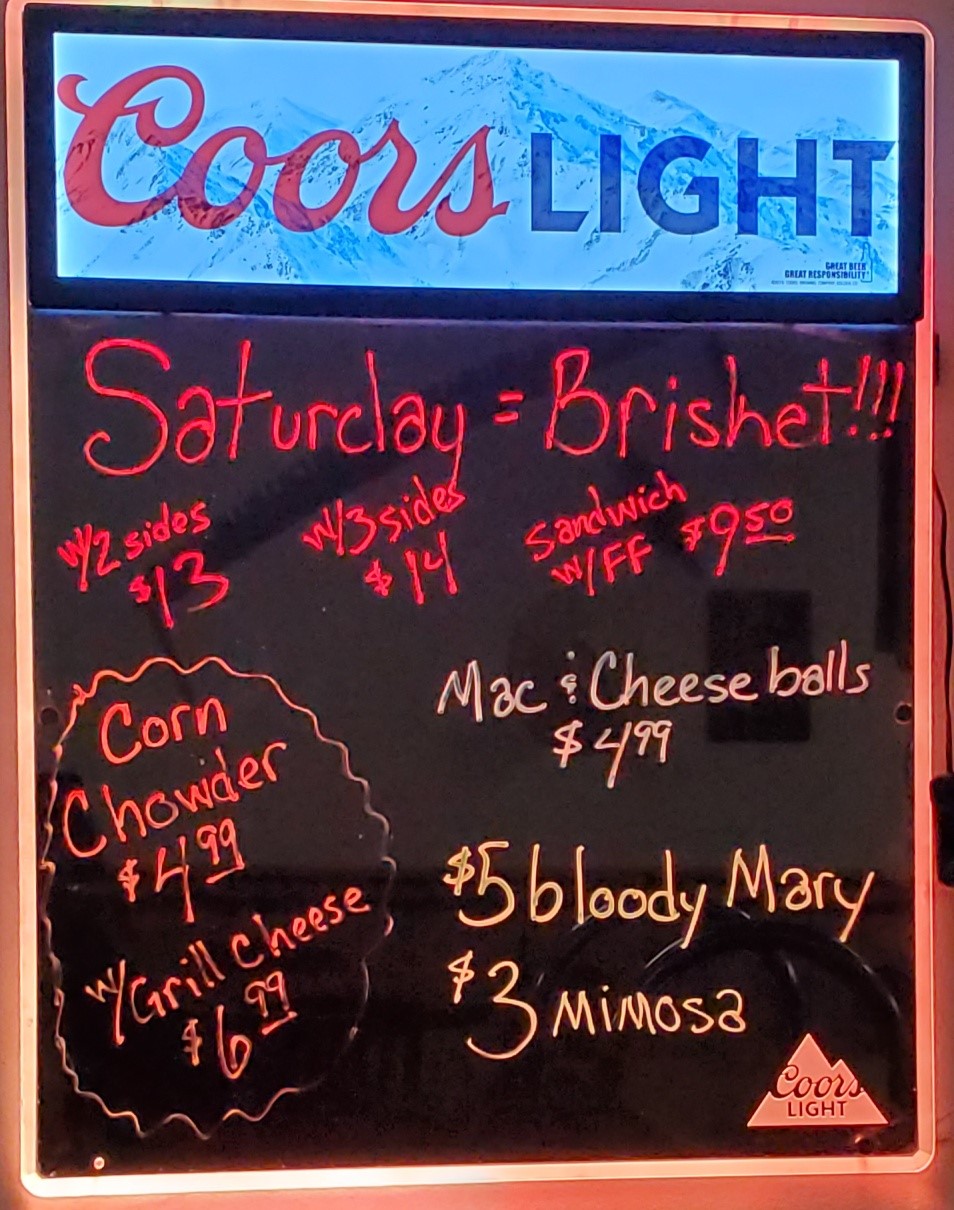 Coors LIGHT
GREAT BEER
GREAT RESPONSIBILITY
Saturday = Brisket!!!
w/2 sides
$13
w/3 sides
$14
Sandwich
w/FF $9.50
Corn
Chowder
$4.99
w/Grill Cheese
$6.99
Mac & Cheese balls
$4.99
$5 bloody Mary
$3 Mimosa
Coors
LIGHT